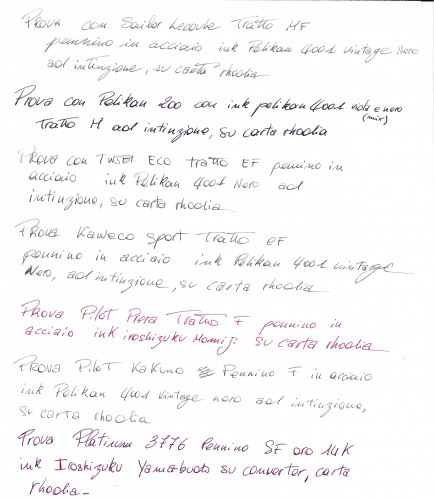 Prova con Sailor Lecoule Tratto MF
pennino in acciaio ink Pelikan 4001 vintage Nero
ad intinzione, su carta rhodia
Prova con Pelikan 200 con ink pelikan 4001 viola e nero
(mix)
Tratto M ad intinzione, su carta rhodia
Prova con TWSBI ECO tratto EF pennino in
acciaio ink Pelikan 4001 Nero ad
intinzione, su carta rhodia
Prova Kaweco sport Tratto EF
pennino in acciaio ink Pelikan 4001 vintage
Nero, ad intinzione, su carta rhodia
Prova Pilot Prera Tratto F pennino in
acciaio ink iroshizuku Momiji su carta rhodia
Prova Pilot Kakuno Pennino F in acciaio
ink Pelikan 4001 vintage nero ad intinzione,
su carta rhodia
Prova Platinum 3776 Pennino SF oro 14K
ink Iroshizuku Yama-budo su converter, carta
rhodia-